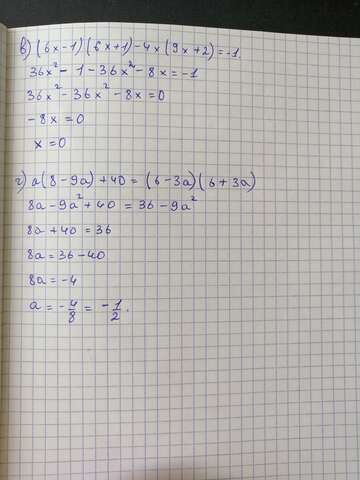 в) (6x-1)(6x+1)-4x(9x+2)=-1.
36x²-1-36x²-8x=-1
36x²-36x²-8x=0
-8x=0
x=0
г) a(8-9a)+40=(6-3a)(6+3a)
8a-9a²+40=36-9a²
8a+40=36
8a=36-40
8a=-4
a=-4/8=-1/2.